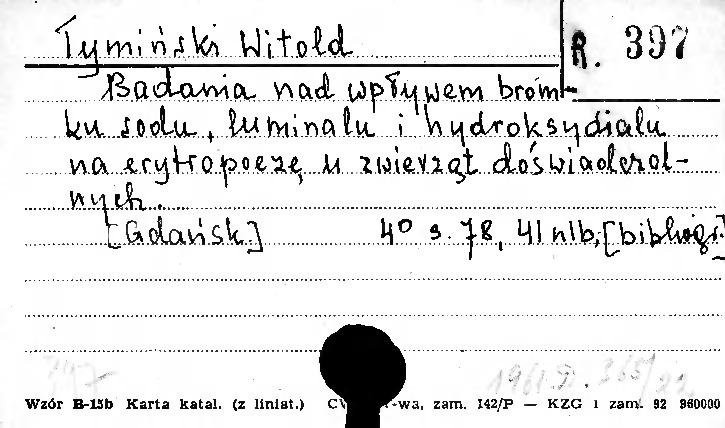 Tymiński Witold
R. 397
Badania nad wpływem brom-
ku sodu, luminalu i hydroksydialu
na erytropoezę u zwierząt doświadczal-
nych.
[Gdańsk] 4° s. 78, 41 nlb, [bibliogr.]
397
1961 365/22
Wzór B-15b Karta katal. (z liniat.) -wa, zam. 142/P — KZG 1 zam. 92 960000